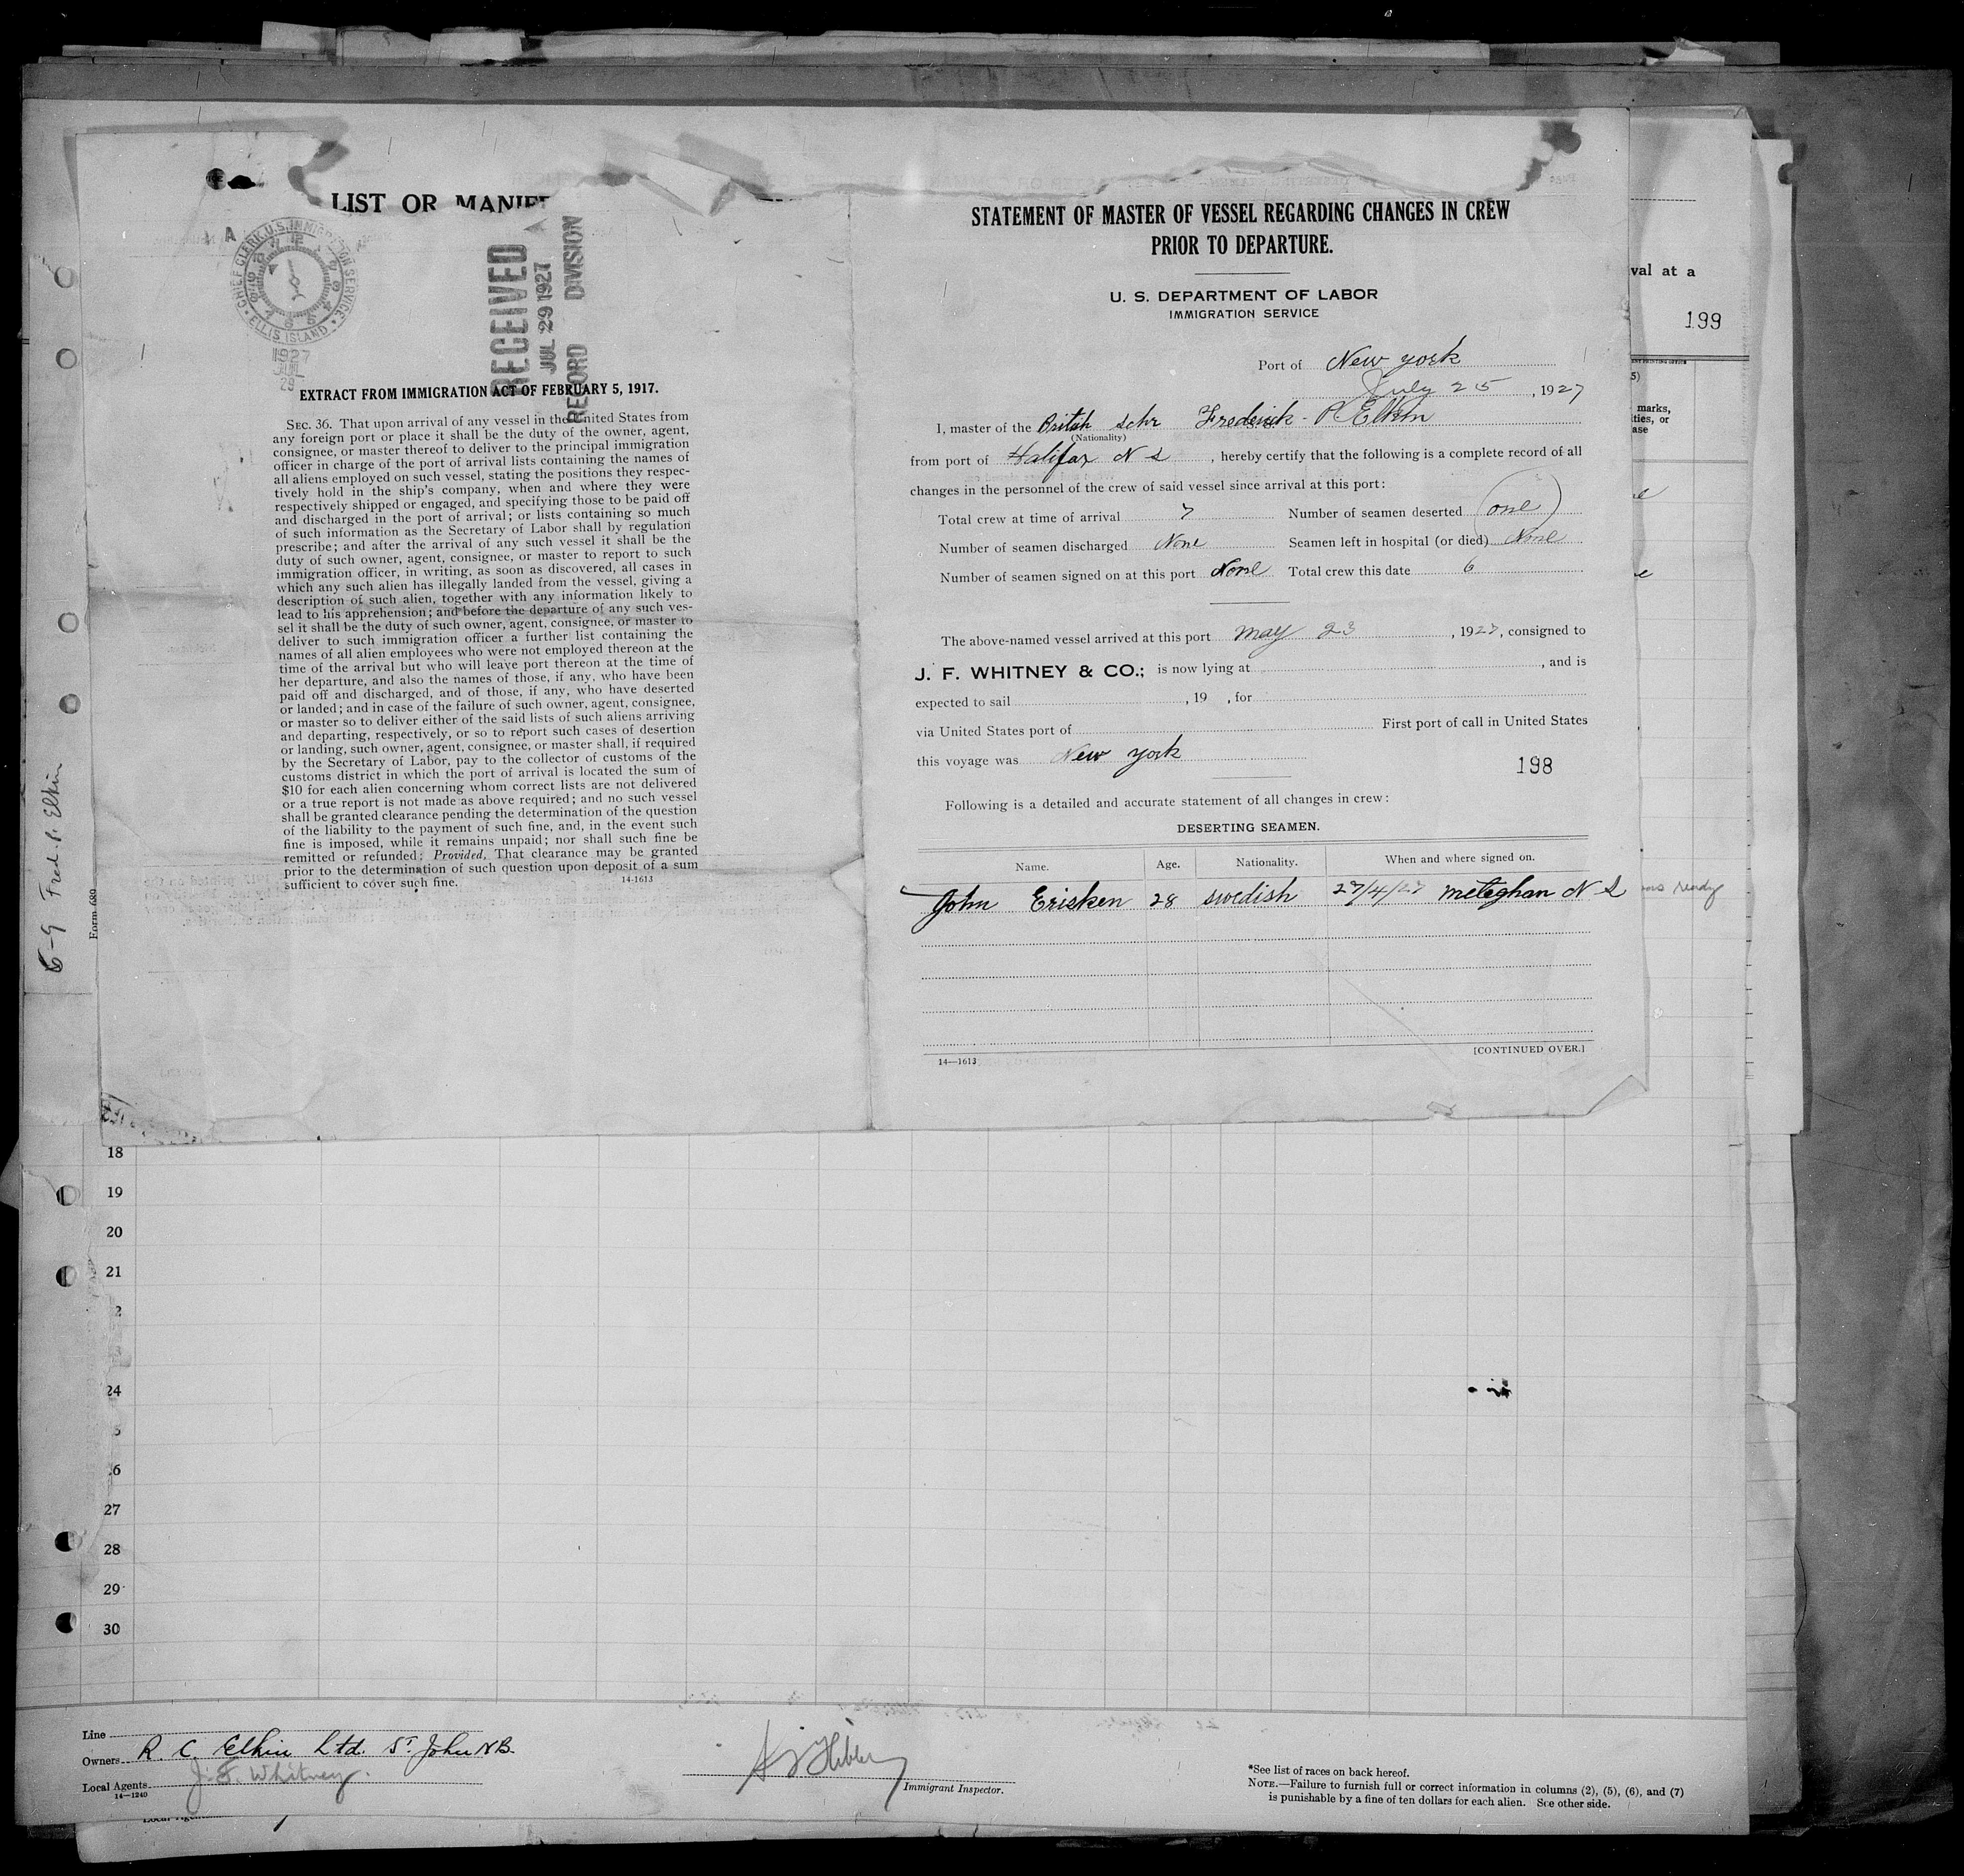 LIST OR MANIFE
CHIEF CLERK, U.S. IMMIGRATION SERVICE
ELLIS ISLAND
1927
JUL
29
RECEIVED
JUL 29 1927
RECORD DIVISION
EXTRACT FROM IMMIGRATION ACT OF FEBRUARY 5, 1917.
SEC. 36. That upon arrival of any vessel in the United States from
any foreign port or place it shall be the duty of the owner, agent,
consignee, or master thereof to deliver to the principal immigration
officer in charge of the port of arrival lists containing the names of
all aliens employed on such vessel, stating the positions they respec-
tively hold in the ship's company, when and where they were
respectively shipped or engaged, and specifying those to be paid off
and discharged in the port of arrival; or lists containing so much
of such information as the Secretary of Labor shall by regulation
prescribe; and after the arrival of any such vessel it shall be the
duty of such owner, agent, consignee, or master to report to such
immigration officer, in writing, as soon as discovered, all cases in
which any such alien has illegally landed from the vessel, giving a
description of such alien, together with any information likely to
lead to his apprehension; and before the departure of any such ves-
sel it shall be the duty of such owner, agent, consignee, or master to
deliver to such immigration officer a further list containing the
names of all alien employees who were not employed thereon at the
time of the arrival but who will leave port thereon at the time of
her departure, and also the names of those, if any, who have been
paid off and discharged, and of those, if any, who have deserted
or landed; and in case of the failure of such owner, agent, consignee,
or master so to deliver either of the said lists of such aliens arriving
and departing, respectively, or so to report such cases of desertion
or landing, such owner, agent, consignee, or master shall, if required
by the Secretary of Labor, pay to the collector of customs of the
customs district in which the port of arrival is located the sum of
$10 for each alien concerning whom correct lists are not delivered
or a true report is not made as above required; and no such vessel
shall be granted clearance pending the determination of the question
of the liability to the payment of such fine, and, in the event such
fine is imposed, while it remains unpaid; nor shall such fine be
remitted or refunded; Provided, That clearance may be granted
prior to the determination of such question upon deposit of a sum
sufficient to cover such fine. 14-1613
Form 689
Fred. P. Elkin
STATEMENT OF MASTER OF VESSEL REGARDING CHANGES IN CREW
PRIOR TO DEPARTURE.
U. S. DEPARTMENT OF LABOR
IMMIGRATION SERVICE
Port of New york
July 25, 1927
I, master of the British Schr Frederick P. Elkin
(Nationality)
from port of Halifax N S, hereby certify that the following is a complete record of all
changes in the personnel of the crew of said vessel since arrival at this port:
Total crew at time of arrival 7 Number of seamen deserted one
Number of seamen discharged None Seamen left in hospital (or died) None
Number of seamen signed on at this port None Total crew this date 6
The above-named vessel arrived at this port may 23, 1927, consigned to
J. F. WHITNEY & CO.; is now lying at , and is
expected to sail , 19 , for
via United States port of First port of call in United States
this voyage was New york
198
Following is a detailed and accurate statement of all changes in crew:
DESERTING SEAMEN.
Name. Age. Nationality. When and where signed on.
John Erisken 28 swedish 27/4/27 meteghan N S
14—1613 [CONTINUED OVER.]
val at a
199
5)
marks,
ties, or
ase
18
19
20
21
2
24
5
26
27
28
29
30
Line
Owners R. C. Elkin Ltd. St John NB.
Local Agents J. F. Whitney.
14—1240
Immigrant Inspector.
*See list of races on back hereof.
NOTE.—Failure to furnish full or correct information in columns (2), (5), (6), and (7)
is punishable by a fine of ten dollars for each alien. See other side.